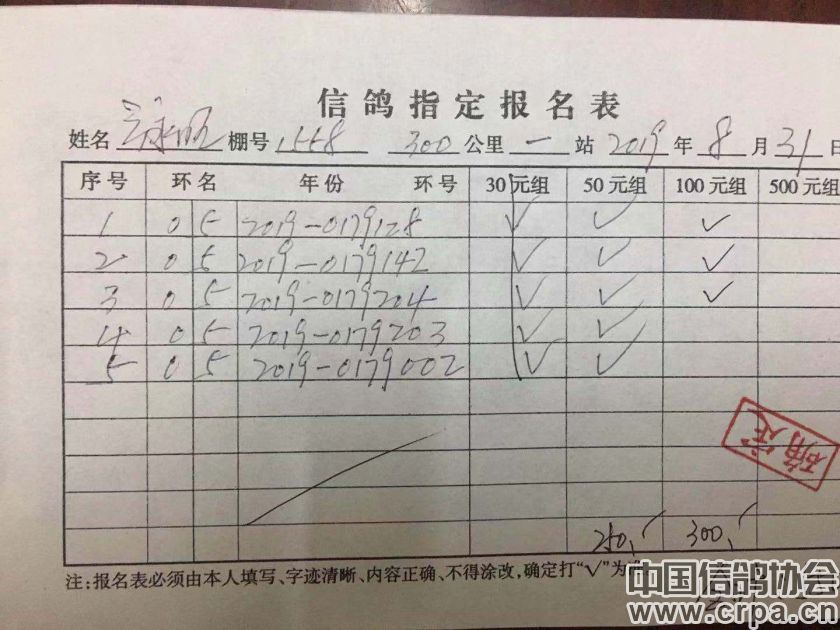 信鸽指定报名表
姓名 棚号 1558 300 公里 一 站 2019 年 8 月 31 日
序号 环名 年份 环号 30元组 50元组 100元组 500元组
1 05 2019-0179128 √ √ √
2 05 2019-0179142 √ √ √
3 05 2019-0179204 √ √ √
4 05 2019-0179203 √ √
5 05 2019-0179002 √ √
确定
250 300
注:报名表必须由本人填写、字迹清晰、内容正确、不得涂改,确定打“√”为
中国信鸽协会
www.crpa.cn